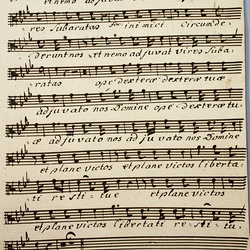 et nemo adjuvat
res subaratas Inimici circumde
derunt nos et nemo adjuvat vires suba
ratas ope dexterae dexterae tuae
adjuva nos Domine ope dexterae tu
ae adjuvato nos adjuvato nos Domine
et plane victos et plane victos liberta
ti restitue et plane victos
et plane victos libertati restitu
e